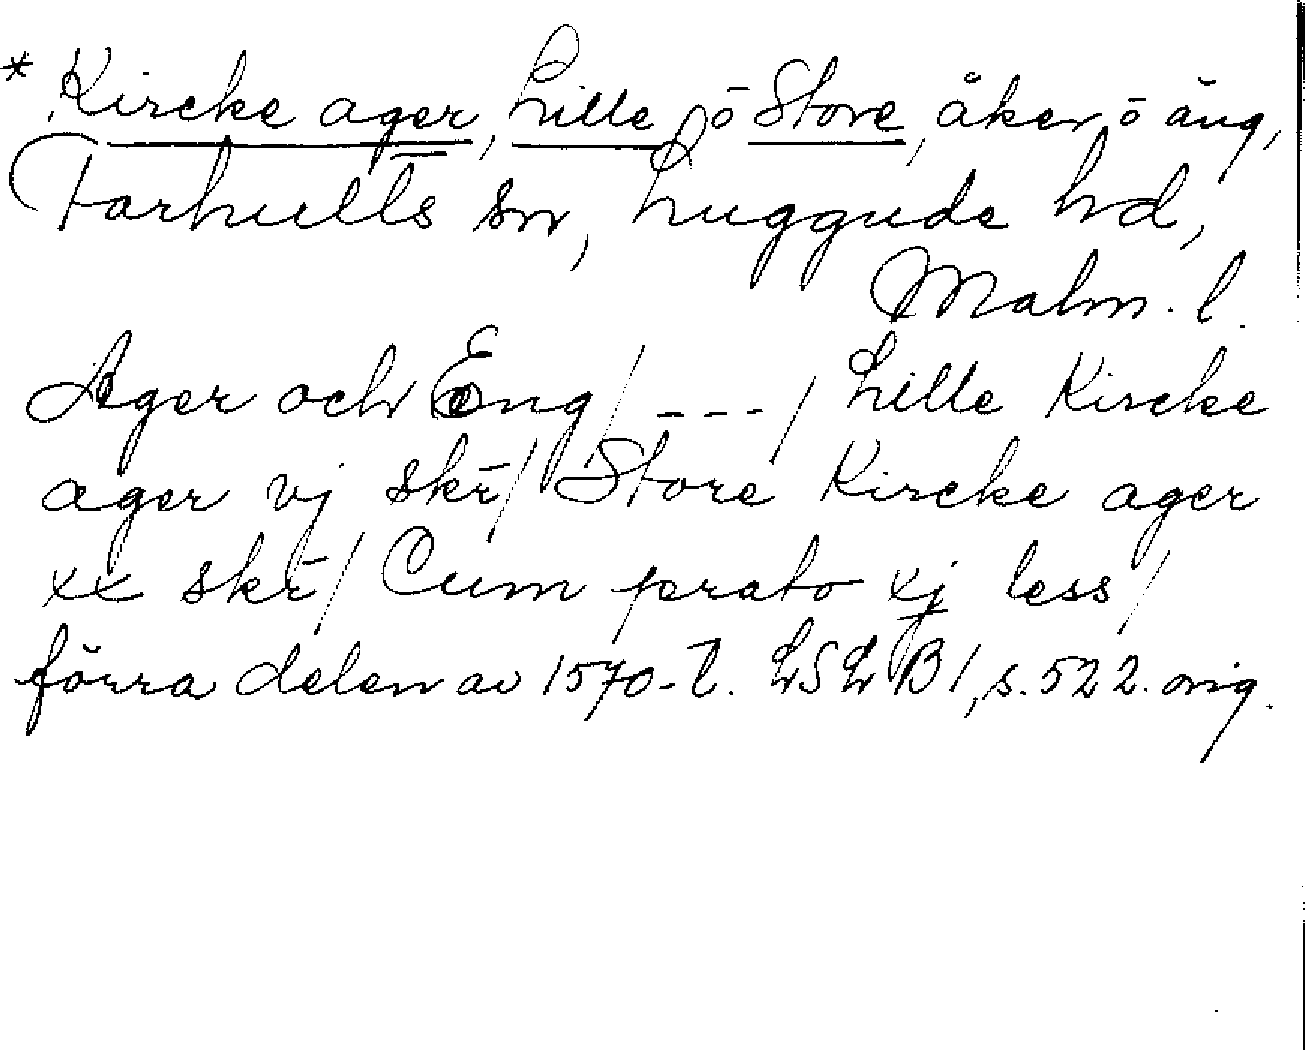 * Kircke ager, Lille ō Store, åker ō äng,
Farhults sn, Luggude hd,
Malm. l.
Ager och Eng / - - - / Lille Kircke
ager vj skr̄ / Store Kircke ager
xx skr̄ / Cum prato xj less /
förra delen av 1570-t. LSLB 1, s. 522. orig.